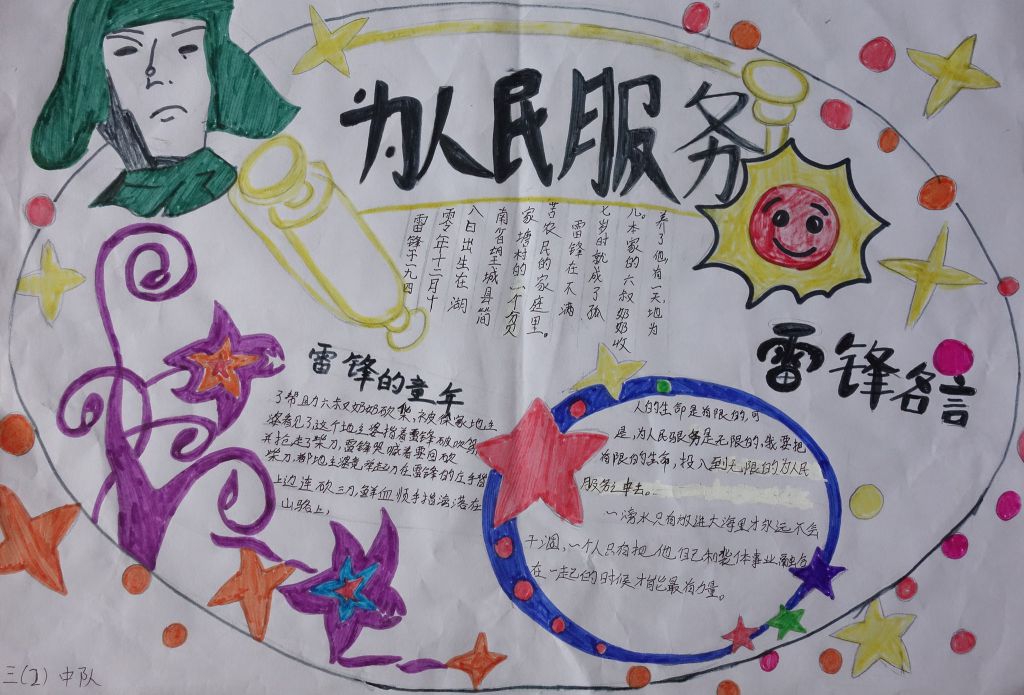 为人民服务
雷锋于一九四
零年十二月十
八日出生在湖
南省望城县简
家塘村的一个贫
苦农民的家庭里。
雷锋在不满
七岁时就成了孤
儿。本家的六叔奶奶收
养了他,有一天,他为
雷锋的童年
了帮助六叔奶奶砍柴,被徐家地主
婆看见了,这个地主婆指着雷锋破口
并抢走了柴刀,雷锋哭喊着要回砍
柴刀,那地主婆竟举起刀在雷锋的左手背
上边连砍三刀,鲜血顺手指滴落在
山路上,
雷锋名言
人的生命是有限的,可
是,为人民服务是无限的,我要把
有限的生命,投入到无限的为人民
服务之中去。
一滴水只有放进大海里才永远不会
干涸,一个人只有把他自己和集体事业融合
在一起的时候才能最有力量。
三(2)中队